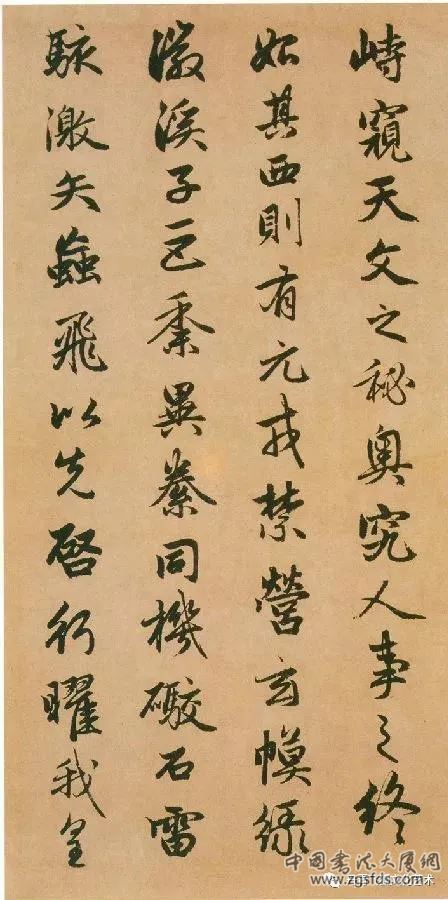 峙窺天文之秘奧究人事之終
始其西則有元戎禁營玄幙綠
徽溪子巨黍異絭同機礮石雷
駭激矢蝱飛以先啓行曜我皇
中國書法大厦網
www.zgsfds.com